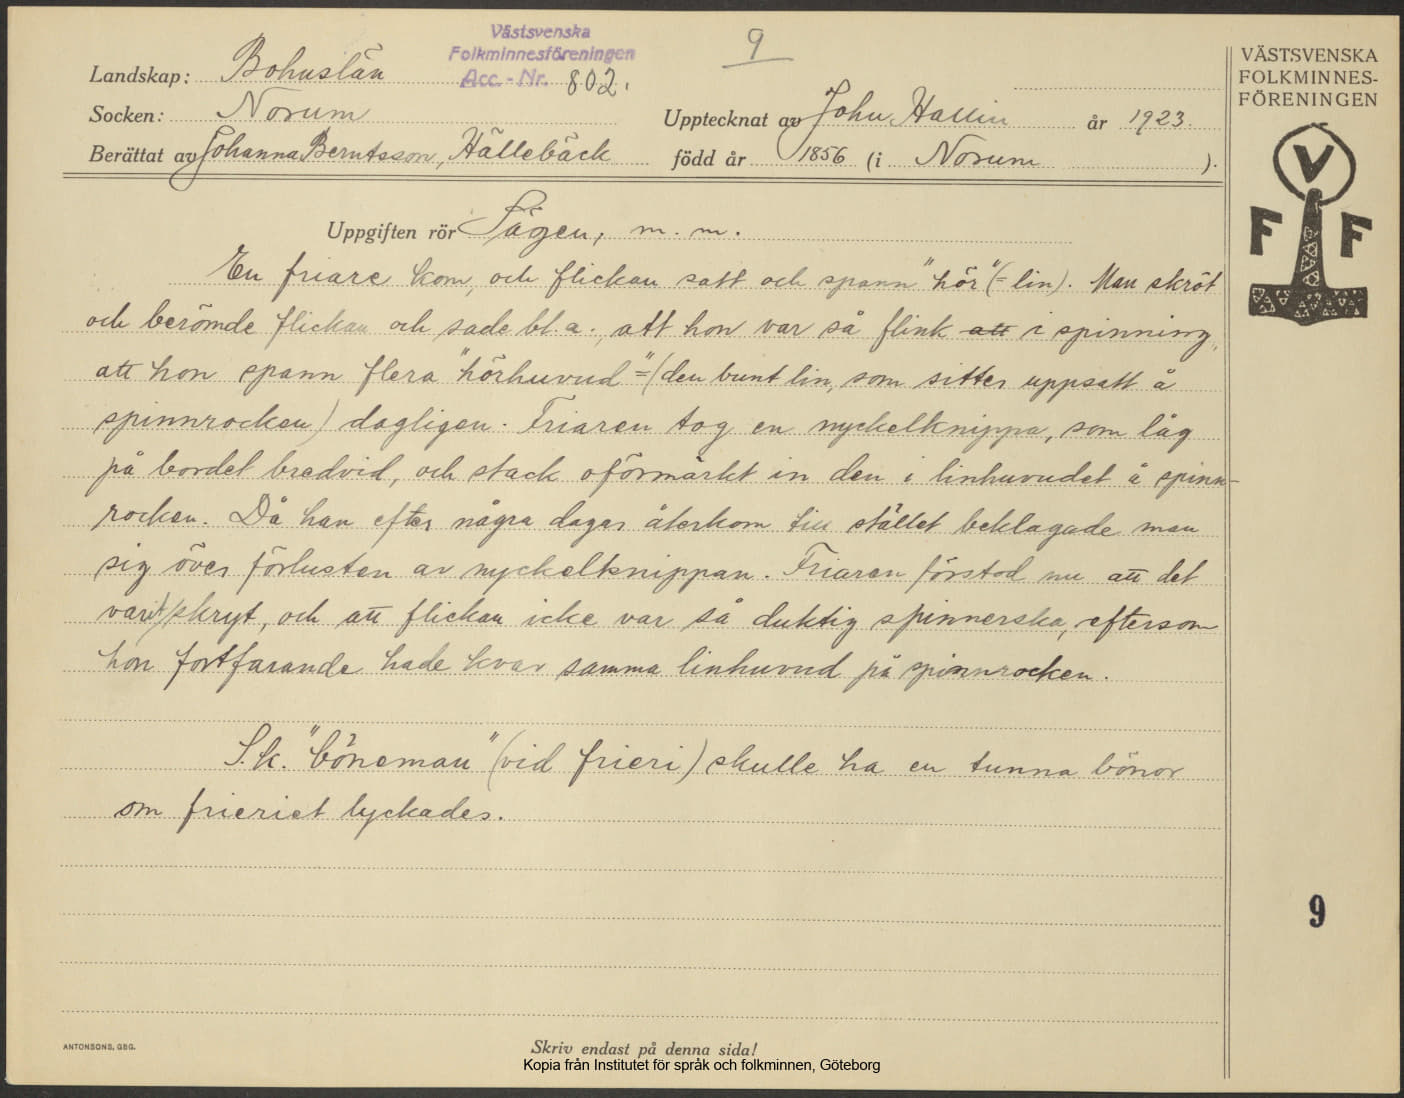 Västsvenska
Folkminnesföreningen
Acc.-Nr. 802.
9
Landskap: Bohuslän
Socken: Norum
Upptecknat av John Hallin år 1923.
Berättat av Johanna Berntsson, Hällebäck född år 1856 (i Norum ).
VÄSTSVENSKA
FOLKMINNES-
FÖRENINGEN
V
F F
Uppgiften rör Sägen, m. m.
En friare kom, och flickan satt och spann "hör" (= lin). Man skröt
och berömde flickan och sade bl. a., att hon var så flink att i spinning,
att hon spann flera "hörhuvud" = (den bunt lin, som sitter uppsatt å
spinnrocken) dagligen. Friaren tog en nyckelknippa, som låg
på bordet bredvid, och stack oförmärkt in den i linhuvudet å spinn-
rocken. Då han efter några dagar återkom till stället beklagade man
sig över förlusten av nyckelknippan. Friaren förstod nu att det
varit skryt, och att flickan icke var så duktig spinnerska, eftersom
hon fortfarande hade kvar samma linhuvud på spinnrocken.
S.k. "böneman" (vid frieri) skulle ha en tunna bönor
om frieriet lyckades.
9
ANTONSONS, GBG.
Skriv endast på denna sida!
Kopia från Institutet för språk och folkminnen, Göteborg